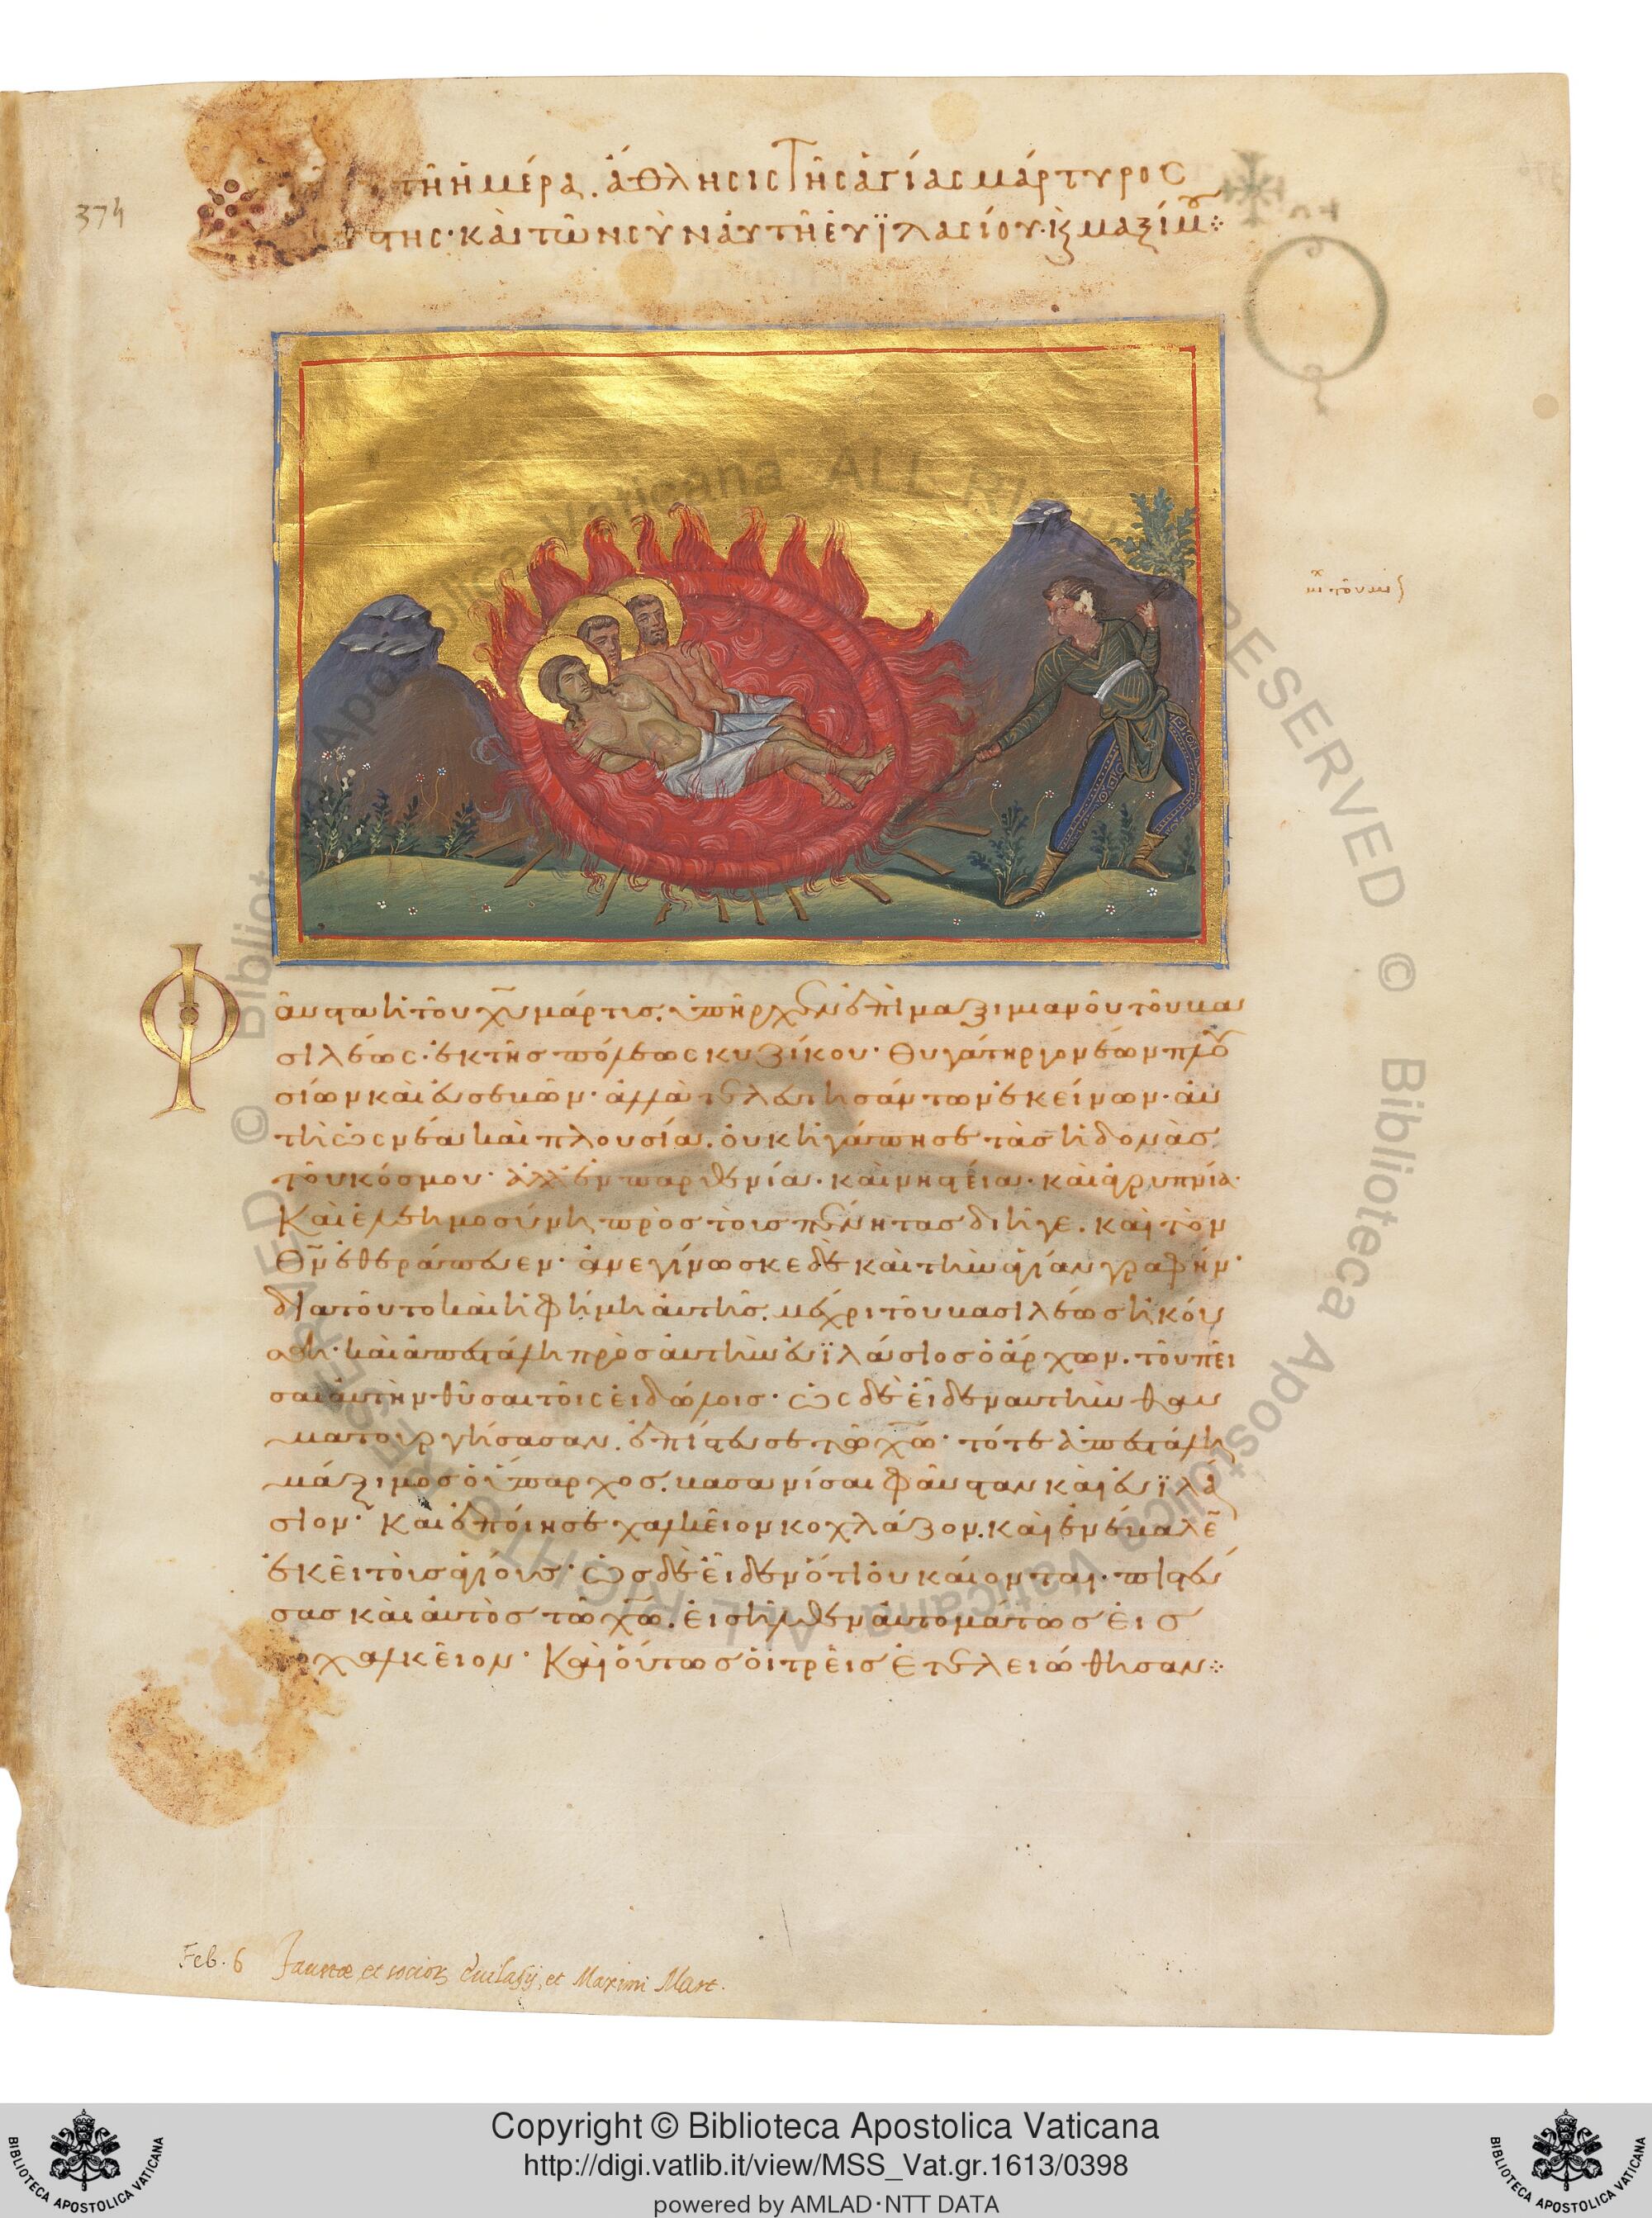 374
τῆ ἡμέρα. ἄθλησις Τῆς ἁγίας μάρτυρος
στης· καὶ τῶν σὺν αὐτῆ ἐυϊλασίου· κ μαξίμου
Φαῦστα ἡ τοῦ χυ μάρτις. ὑπῆρχεν ἐπὶ μαξιμιανοῦ τοῦ βα
σιλέως· ἐκ τῆς πόλεως κυζίκου· θυγάτηρ γονέων πλου
σίων καὶ ἐυσεβῶν· ἀλλὰ τελευτησάντων ἐκείνων· αὐ
τὴ ὡς νέα καὶ πλουσία. οὐκ ἠγάπησε τὰς ἡδονὰς
τοῦ κόσμου· ἀλλ ἐν παρθενία. καὶ νηστεία. καὶ ἀγρυπνία.
Καὶ ἐλεημοσύνη πρὸς τοὺς πένητας διῆγε. καὶ τὸν
θν ἐθεράπευεν· ἀνεγίνωσκε δὲ καὶ τὴν ἁγίαν γραφήν·
διατοῦτο καὶ ἡ φήμη αὐτῆς. μέχρι τοῦ βασιλέως ἠκού
σθη· καὶ ἀπεστάλη πρὸς αὐτὴν ἐυϊλάσιος ὁ ἄρχων. τοῦ πεῖ
σαι αὐτὴν θῦσαι τοῖς εἰδώλοις· ὡς δὲ εἶδεν αὐτὴν θαυ
ματουργήσασαν. ἐπίστευσε τῶ χω· τότε ἀπεστάλη
μάξιμος ὁ ὕπαρχος. βασανίσαι φαῦσταν καὶ ἐυϊλά
σιον· Καὶ ἐποίησε χαλκεῖον κοχλάζον. καὶ ἐνέβαλεν
ἐκεῖ τοὺς ἁγίους· ὡς δὲ εἶδεν ὅτι οὐ καίονται. πιστεύ
σας καὶ αὐτὸς τῶ χω. εἰσῆλθεν αὐτομάτως εἰς
το χαλκεῖον· Καὶ οὕτως οἱ τρεῖς ἐτελειώθησαν
Feb. 6 Faustæ et socior. Euilasij, et Maximi Mart.
© Biblioteca Apostolica Vaticana ALL RIGHTS RESERVED
Copyright © Biblioteca Apostolica Vaticana
http://digi.vatlib.it/view/MSS_Vat.gr.1613/0398
powered by AMLAD·NTT DATA
BIBLIOTECA APOSTOLICA VATICANA
BIBLIOTECA APOSTOLICA VATICANA